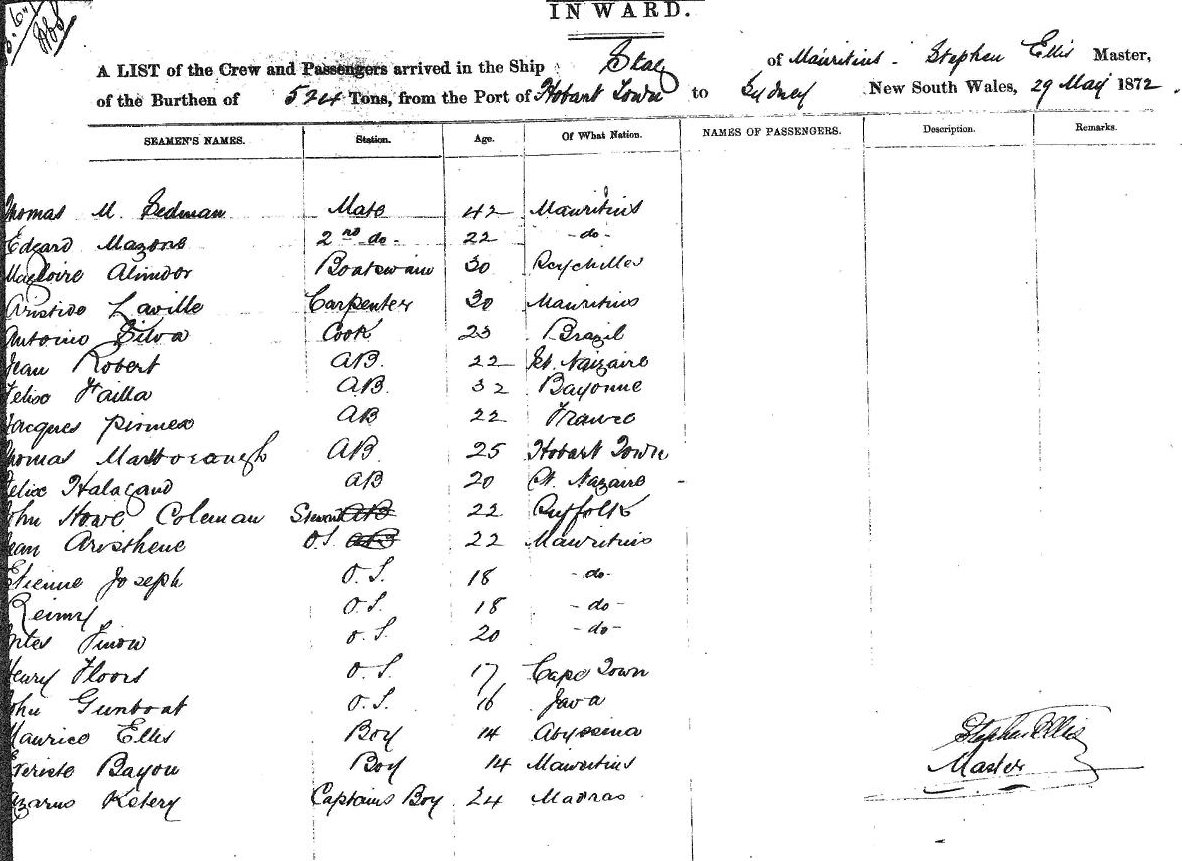 INWARD.
A LIST of the Crew and Passengers arrived in the Ship Stag of Mauritius - Stephen Ellis Master,
of the Burthen of 524 Tons, from the Port of Hobart Town to Sydney New South Wales, 29 May 1872.
SEAMEN'S NAMES. Station. Age. Of What Nation. NAMES OF PASSENGERS. Description. Remarks.
Thomas M. Sedman Mate 42 Mauritius
Edgard Mazone 2nd do - 22 - do -
Alindor Boatswain 30 Seychilles
Aristide Laville Carpenter 30 Mauritius
Antoino Silva Cook 23 Brazil
Jean Robert AB. 22 St. Naizaire
Felise Failla AB. 32 Bayonne
Jacques AB 22 France
Thomas AB. 25 Hobart Town
Felix Halagand AB 20 St. Nazaire -
John Howe Coleman Steward AB 22 Suffolk
Jean Aristhene O.S. AB 22 Mauritius
Etienne Joseph O.S. 18 - do -
Reimy O.S. 18 - do -
Finow O.S. 20 - do -
Henry Floors O.S. 17 Cape Town
John Gunboat O.S. 16 Java
Maurice Ellis Boy 14 Abyssina
Everiste Bayou Boy 14 Mauritius
Lazarus Ketery Captains Boy 24 Madras
Stephen Ellis
Master